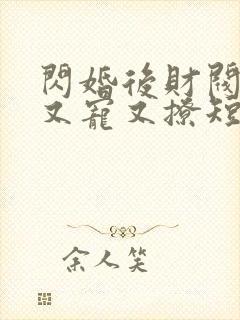 閃婚後財閥
又寵又撩短
余人笑